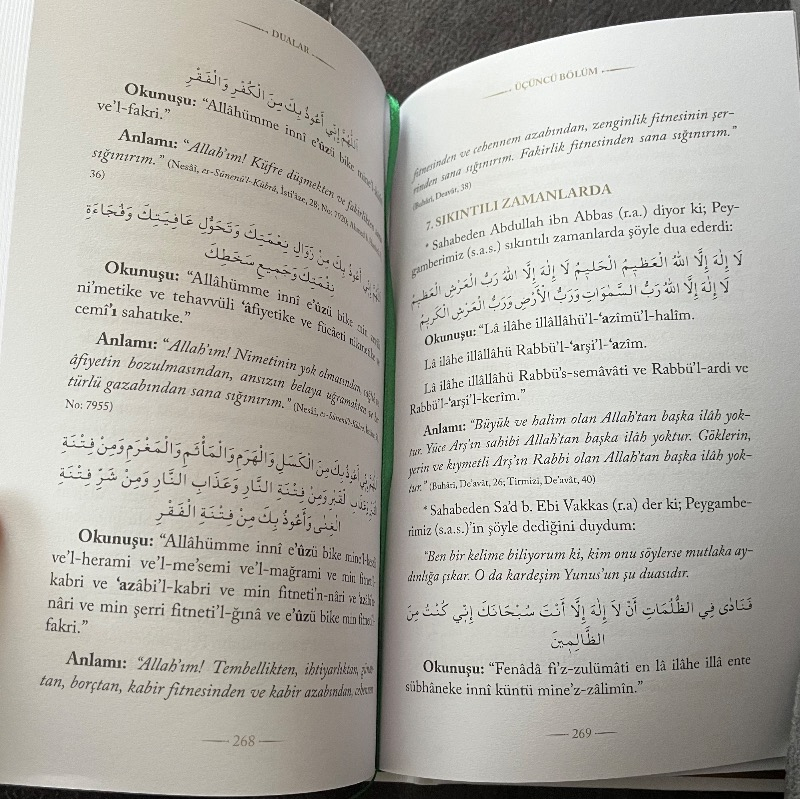 DUALAR
اَللّٰهُمَّ إِنِّي أَعُوذُ بِكَ مِنَ الْكُفْرِ وَالْفَقْرِ
Okunuşu: “Allâhümme innî e‘ûzü bike mine’l-
ve’l-fakri.”
Anlamı: “Allah’ım! Küfre düşmekten ve
sığınırım.” (Nesâî, es-Sünenü’l-Kübrâ, İsti’âze, 28; No: 7920;
36)
أَعُوذُ بِكَ مِنْ زَوَالِ نِعْمَتِكَ وَتَحَوُّلِ عَافِيَتِكَ وَفُجَاءَةِ
نِقْمَتِكَ وَجَمِيعِ سَخَطِكَ
Okunuşu: “Allâhümme innî e‘ûzü bike min
ni’metike ve tehavvüli ‘âfiyetike ve fücâeti
cemî‘ı sahatike.”
Anlamı: “Allah’ım! Nimetinin yok olmatından,
âfiyetin bozulmasından, ansızın belaya uğramaktan
türlü gazabından sana sığınırım.” (Nesâî, es-Sünenü’l-Kübrâ,
No: 7955)
أَعُوذُ بِكَ مِنَ الْكَسَلِ وَالْهَرَمِ وَالْمَأْثَمِ وَالْمَغْرَمِ وَمِنْ فِتْنَةِ
الْقَبْرِ وَمِنْ فِتْنَةِ النَّارِ وَعَذَابِ النَّارِ وَمِنْ شَرِّ فِتْنَةِ
الْغِنٰى وَأَعُوذُ بِكَ مِنْ فِتْنَةِ الْفَقْرِ
Okunuşu: “Allâhümme innî e‘ûzü bike mine’l-
ve’l-herami ve’l-me’semi ve’l-mağrami ve min
kabri ve ‘azâbi’l-kabri ve min fitneti’n-nâri ve
nâri ve min şerri fitneti’l-ğınâ ve e‘ûzü bike min
fakri.”
Anlamı: “Allah’ım! Tembellikten, ihtiyarlıktan,
tan, borçtan, kabir fitnesinden ve kabir azabından,
268
ÜÇÜNCÜ BÖLÜM
fitnesinden ve cehennem azabından, zenginlik fitnesinin şer-
rinden sana sığınırım. Fakirlik fitnesinden sana sığınırım.”
(Buhârî, Deavât, 38)
7. SIKINTILI ZAMANLARDA
* Sahabeden Abdullah ibn Abbas (r.a.) diyor ki; Pey-
gamberimiz (s.a.s.) sıkıntılı zamanlarda şöyle dua ederdi:
لَا إِلٰهَ إِلَّا اللّٰهُ الْعَظِيمُ الْحَلِيمُ لَا إِلٰهَ إِلَّا اللّٰهُ رَبُّ الْعَرْشِ الْعَظِيمُ
لَا إِلٰهَ إِلَّا اللّٰهُ رَبُّ السَّمٰوَاتِ وَرَبُّ الْأَرْضِ وَرَبُّ الْعَرْشِ الْكَرِيمُ
Okunuşu: “Lâ ilâhe illâllâhü’l-‘azîmü’l-halîm.
Lâ ilâhe illâllâhü Rabbü’l-‘arşi’l-‘azîm.
Lâ ilâhe illâllâhü Rabbü’s-semâvâti ve Rabbü’l-ardi ve
Rabbü’l-‘arşi’l-kerîm.”
Anlamı: “Büyük ve halim olan Allah’tan başka ilâh yok-
tur. Yüce Arş’ın sahibi Allah’tan başka ilâh yoktur. Göklerin,
yerin ve kıymetli Arş’ın Rabbi olan Allah’tan başka ilâh yok-
tur.” (Buhârî, De’avât, 26; Tirmizî, De’avât, 40)
* Sahabeden Sa’d b. Ebi Vakkas (r.a) der ki; Peygambe-
rimiz (s.a.s.)’in şöyle dediğini duydum:
“Ben bir kelime biliyorum ki, kim onu söylerse mutlaka ay-
dınlığa çıkar. O da kardeşim Yunus’un şu duasıdır.
فَنَادٰى فِي الظُّلُمَاتِ أَنْ لَا إِلٰهَ إِلَّا أَنْتَ سُبْحَانَكَ إِنِّي كُنْتُ مِنَ
الظَّالِمِينَ
Okunuşu: “Fenâdâ fi’z-zulümâti en lâ ilâhe illâ ente
sübhâneke innî küntü mine’z-zâlimîn.”
269